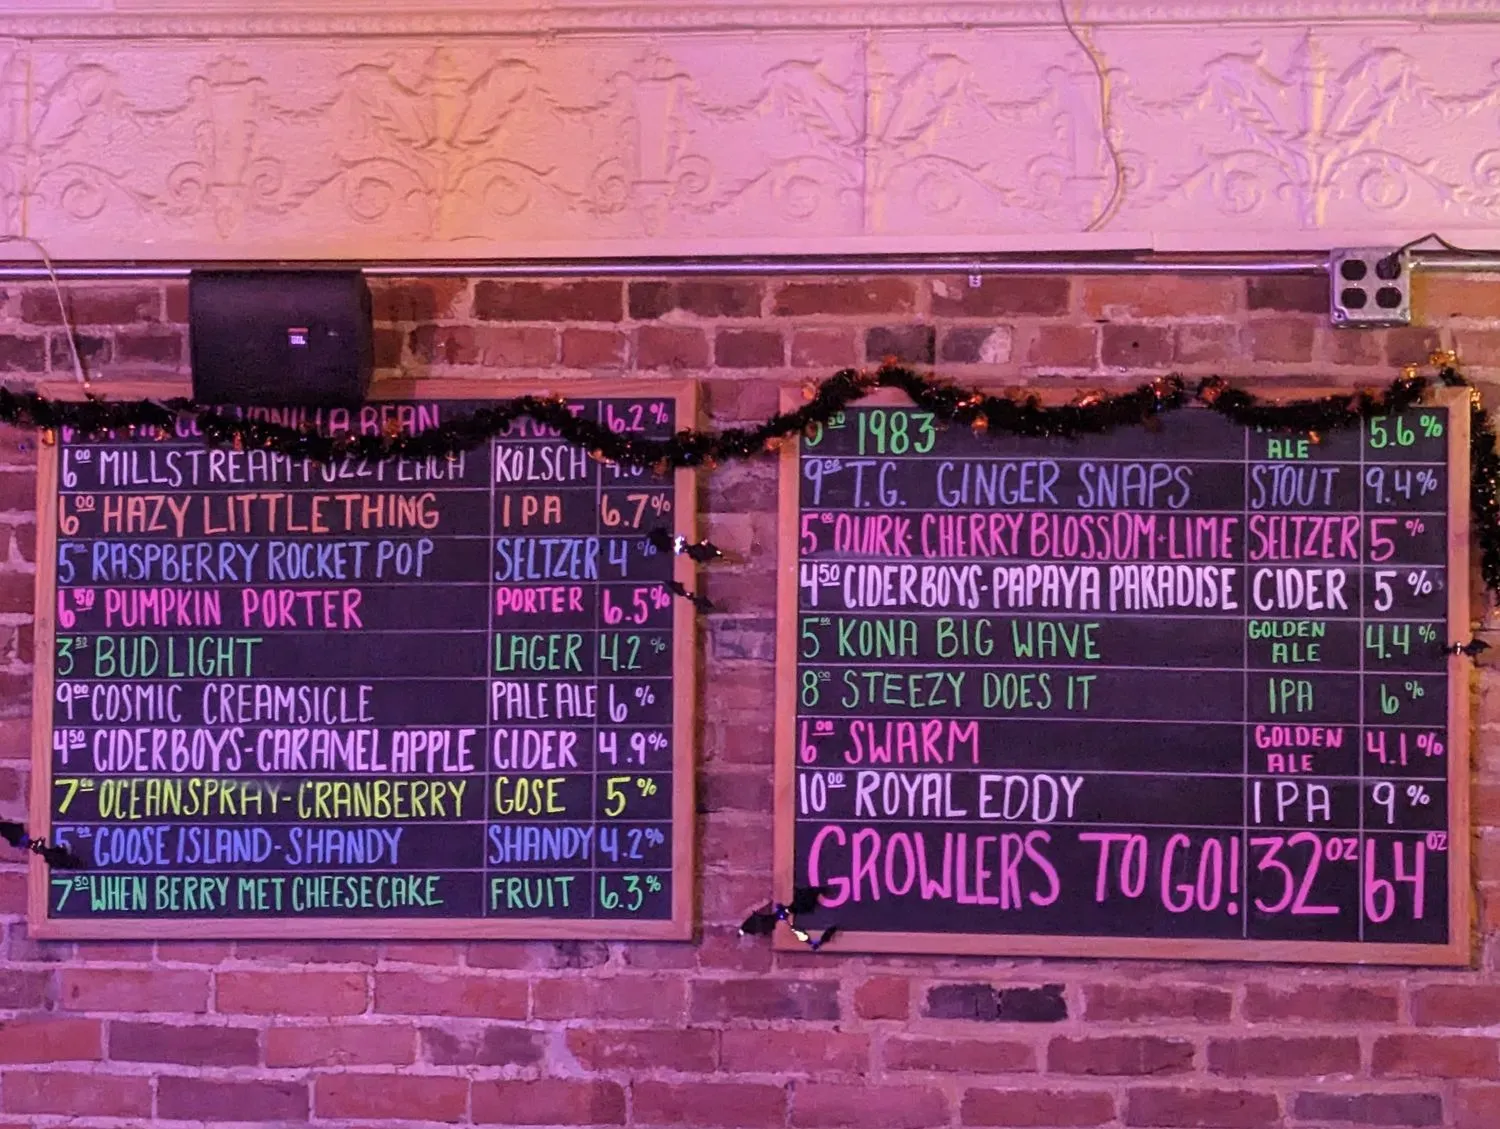 JBL
VANILLA BEAN 6.2%
6⁰⁰ MILLSTREAM-FUZZ PEACH KÖLSCH
6⁰⁰ HAZY LITTLE THING IPA 6.7%
5 RASPBERRY ROCKET POP SELTZER 4%
6⁵⁰ PUMPKIN PORTER PORTER 6.5%
3⁵⁰ BUD LIGHT LAGER 4.2%
9⁰⁰ COSMIC CREAMSICLE PALE ALE 6%
4⁵⁰ CIDERBOYS-CARAMEL APPLE CIDER 4.9%
7⁰⁰ OCEANSPRAY-CRANBERRY GOSE 5%
5⁰⁰ GOOSE ISLAND-SHANDY SHANDY 4.2%
7⁵⁰ WHEN BERRY MET CHEESECAKE FRUIT 6.3%
1983 ALE 5.6%
9⁰⁰ T.G. GINGER SNAPS STOUT 9.4%
5⁰⁰ QUIRK-CHERRY BLOSSOM+LIME SELTZER 5%
4⁵⁰ CIDERBOYS-PAPAYA PARADISE CIDER 5%
5 KONA BIG WAVE GOLDEN ALE 4.4%
8 STEEZY DOES IT IPA 6%
6⁰⁰ SWARM GOLDEN ALE 4.1%
10⁰⁰ ROYAL EDDY IPA 9%
GROWLERS TO GO! 32 OZ 64 OZ